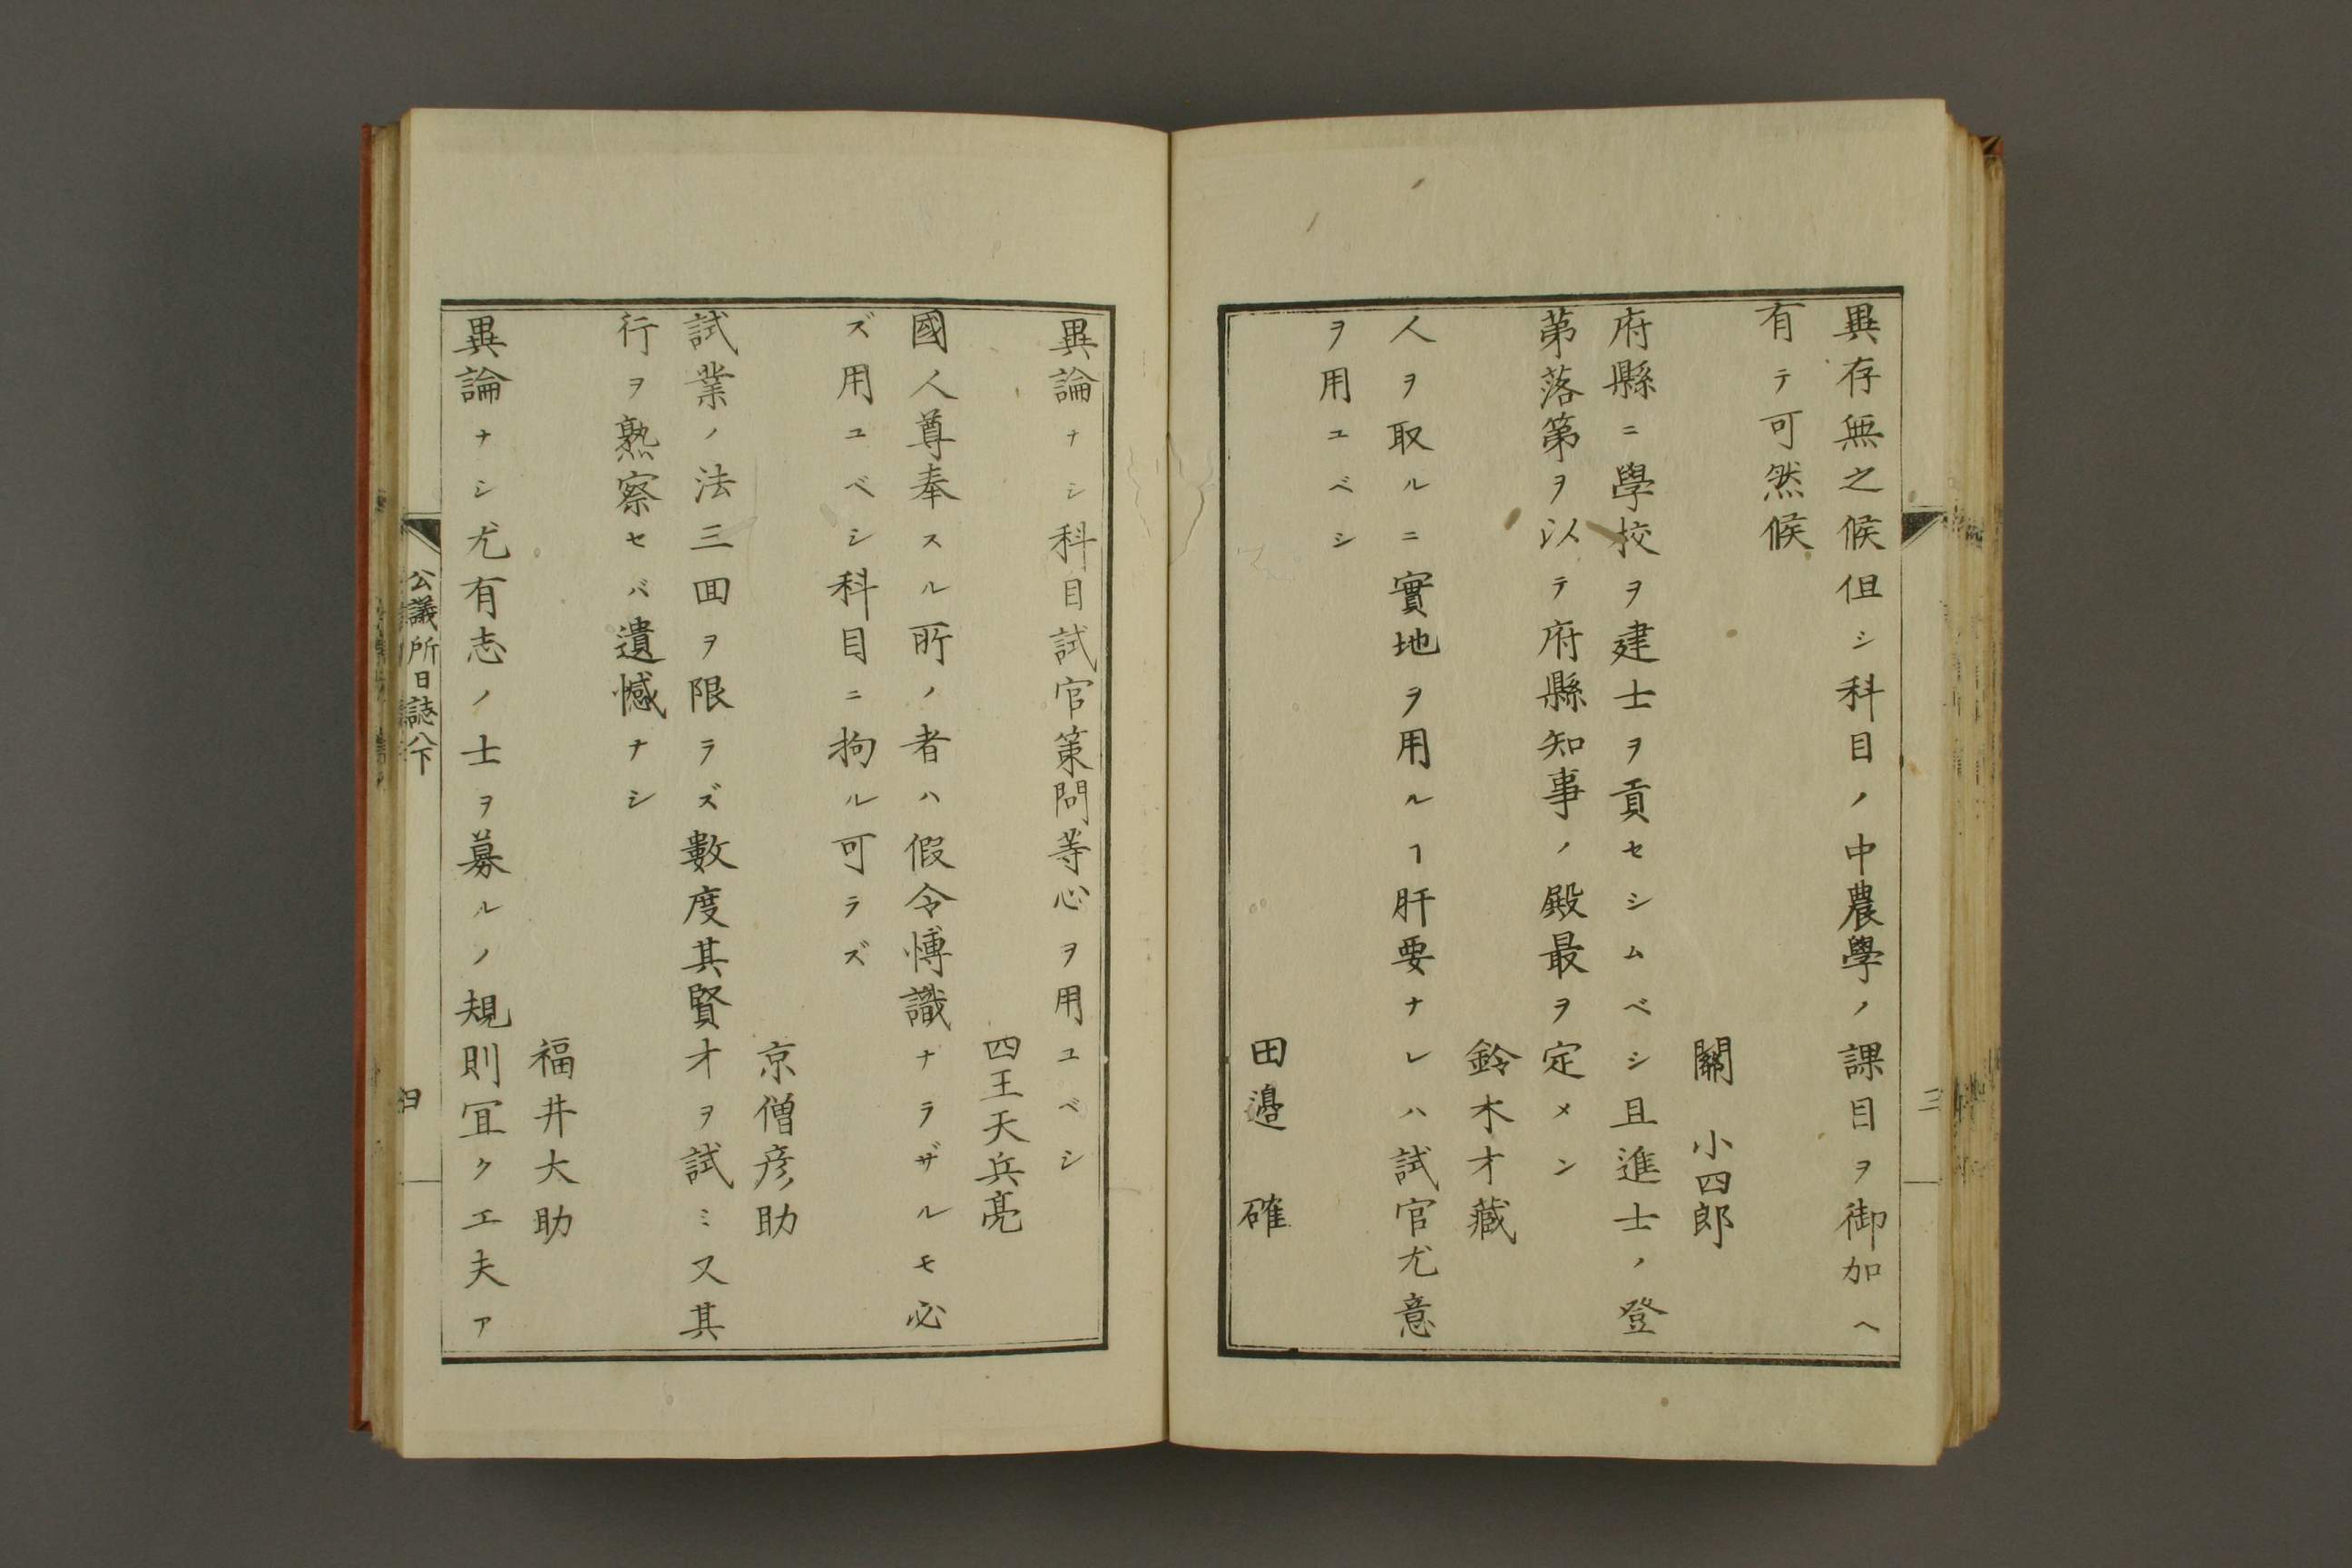 異存無之候但シ科目ノ中農學ノ課目ヲ御加ヘ
有テ可然候
關 小四郎
府縣ニ學校ヲ建士ヲ貢セシムベシ且進士ノ登
第落第ヲ以テ府縣知事ノ殿最ヲ定メン
鈴木才藏
人ヲ取ルニ實地ヲ用ルヿ肝要ナレハ試官尤意
ヲ用ユベシ
田邉 確
三
異論ナシ科目試官策問等心ヲ用ユベシ
四王天兵亮
國人尊奉スル所ノ者ハ假令博識ナラザルモ必
ズ用ユベシ科目ニ拘ル可ラズ
京僧彦助
試業ノ法三回ヲ限ラズ數度其賢才ヲ試ミ又其
行ヲ熟察セバ遺憾ナシ
福井大助
異論ナシ尤有志ノ士ヲ募ルノ規則宜ク工夫ア
公議所日誌八下